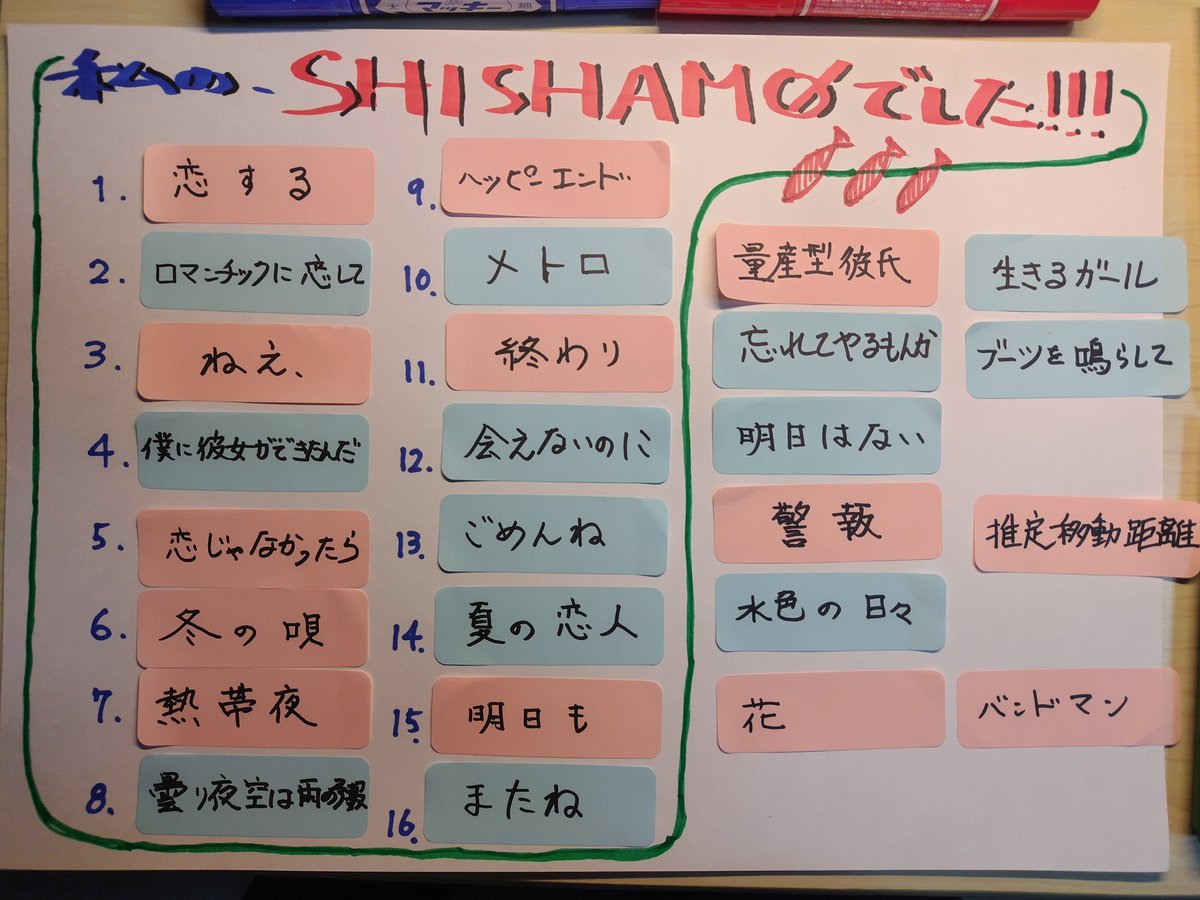 太 マッキー 細
私の、SHISHAMOでした!!!
1. 恋する
2. ロマンチックに恋して
3. ねえ、
4. 僕に彼女ができたんだ
5. 恋じゃなかったら
6. 冬の唄
7. 熱帯夜
8. 曇り夜空は雨の予報
9. ハッピーエンド
10. メトロ
11. 終わり
12. 会えないのに
13. ごめんね
14. 夏の恋人
15. 明日も
16. またね
量産型彼氏
忘れてやるもんか
明日はない
警報
水色の日々
花
生きるガール
ブーツを鳴らして
推定移動距離
バンドマン